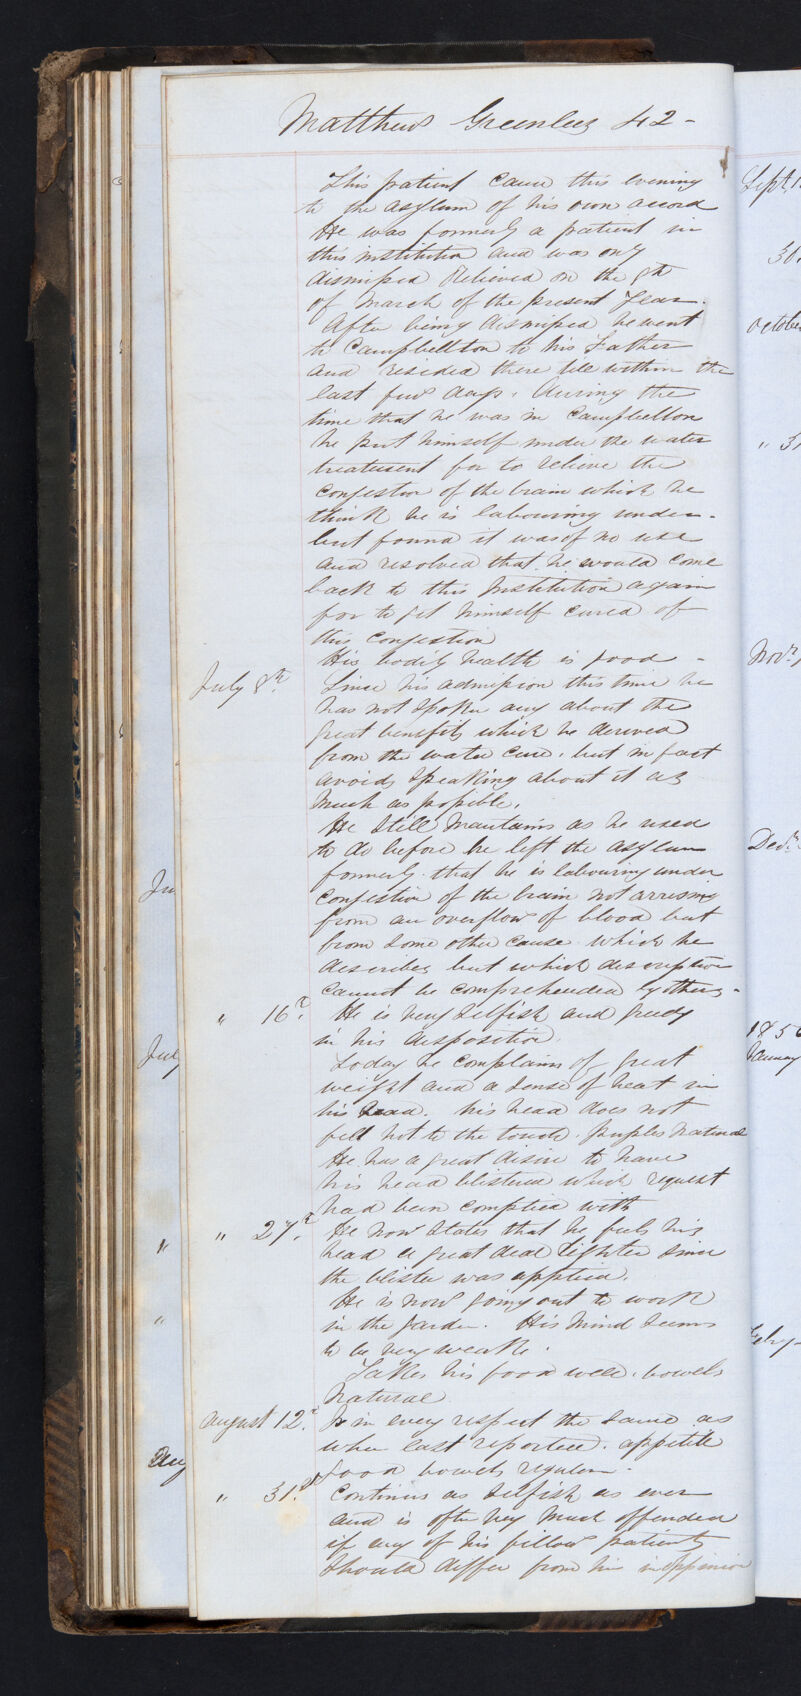 Matthew Greenlees 42 -
This patient came this evening
to the asylum of his own accord
He was formerly a patient in
this institution and was only
dismissed Relieved on the 9th
of March of the present Year.
After being dismissed he went
to Campbellton to his Father
and resided there till within the
last few days. during the
time that he was in Campbelton
he put himself under the water
treatment for to relieve the
congestion of the brain which he
think he is labouring under -
but found it was of no use
and resolved that he would come
back to this Institution again
for to get himself cured of
this congestion
His bodily health is good -
July 8th. Since his admission this time he
has not spoken any about the
great benefits which he derived
from the water cure. but in fact
avoids speaking about it as
much as possible.
He still maintains as he used
to do before he left the asylum
formerly. that he is labouring under
congestion of the brain not arrising
from an overflow of blood but
from some other cause which he
describes but which description
cannot be comprehended by others -
" 16th. He is very selfish and greedy
in his disposition.
Today he complains of great
weight and a sense of heat in
his head. his head does not
fell hot to the touch. puples natural
He has a great disire to have
his head blistered which request
had been complied with
" 27th. He now states that he feels his
head a great deal lighter since
the blister was applied.
He is now going out to work
in the garden. His mind seems
to be very weak.
Takes his food well. bowels
natural
August 12th. Is in every respect the same as
when last reported. appetite
good bowels regular -
" 31st Continues as selfish as ever
and is often very much offended
if any of his fellow patients
should differ from him in oppinion
Sept 1
30
October
" 3
Novr
Decr
185
January
Feby
Ju
July
"
"
Aug